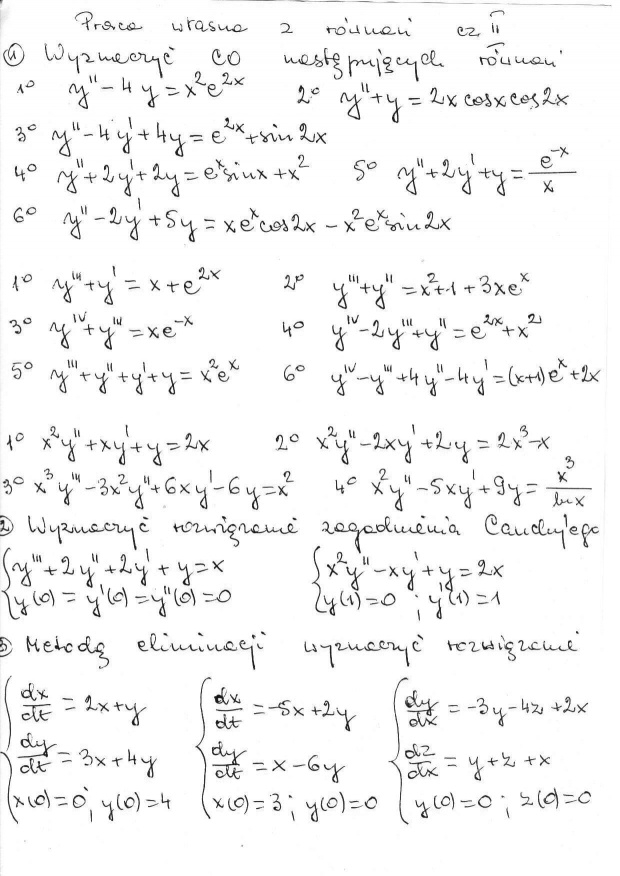 Praca własna z równań cz II
① Wyznaczyć CO następujących równań
1° y'' - 4y = x²e^{2x} 2° y'' + y = 2x cosx cos2x
3° y'' - 4y' + 4y = e^{2x} + sin2x
4° y'' + 2y' + 2y = e^x sinx + x² 5° y'' + 2y' + y = e^{-x}/x
6° y'' - 2y' + 5y = xe^x cos2x - x²e^x sin2x
1° y''' + y' = x + e^{2x} 2° y''' + y'' = x² + 1 + 3xe^x
3° y^{IV} + y''' = xe^{-x} 4° y^{IV} - 2y''' + y'' = e^{2x} + x²
5° y''' + y'' + y' + y = x²e^x 6° y^{IV} - y''' + 4y'' - 4y' = (x+1)e^x + 2x
1° x²y'' + xy' + y = 2x 2° x²y'' - 2xy' + 2y = 2x³ - x
3° x³y''' - 3x²y'' + 6xy' - 6y = x² 4° x²y'' - 5xy' + 9y = x³/lnx
② Wyznaczyć rozwiązanie zagadnienia Cauchy'ego
{ y''' + 2y'' + 2y' + y = x { x²y'' - xy' + y = 2x
y(0) = y'(0) = y''(0) = 0 y(1) = 0 ; y'(1) = 1
③ Metodą eliminacji wyznaczyć rozwiązanie
{ dx/dt = 2x + y { dx/dt = -5x + 2y { dy/dx = -3y - 4z + 2x
dy/dt = 3x + 4y dy/dt = x - 6y dz/dx = y + z + x
x(0) = 0 ; y(0) = 4 x(0) = 3 ; y(0) = 0 y(0) = 0 ; z(0) = 0